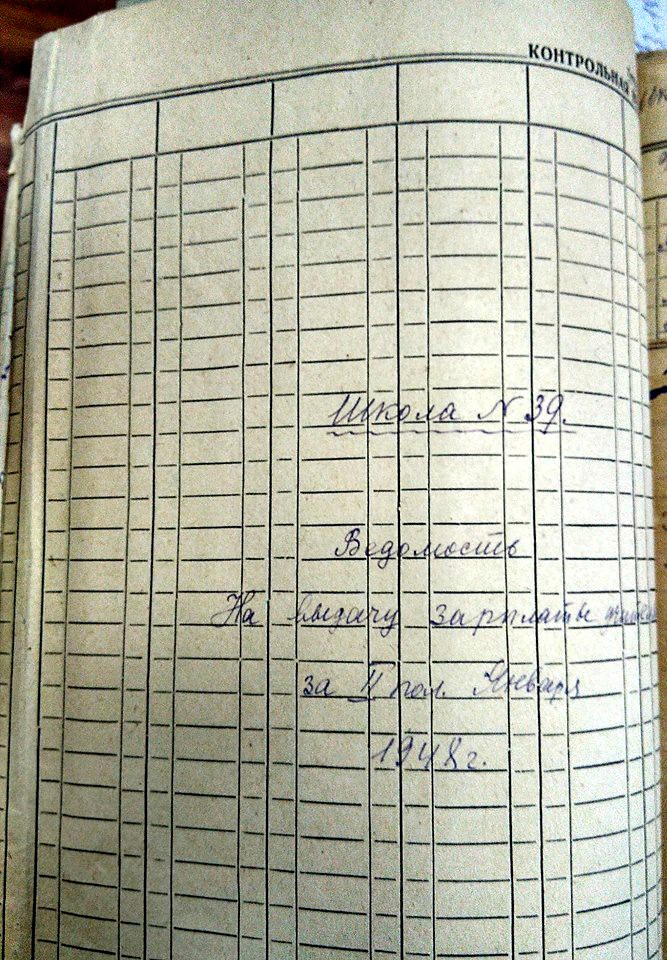 КОНТРОЛЬНАЯ
Школа N 39.
Ведомость
На выдачу зарплаты
за II пол. Января
1948 г.